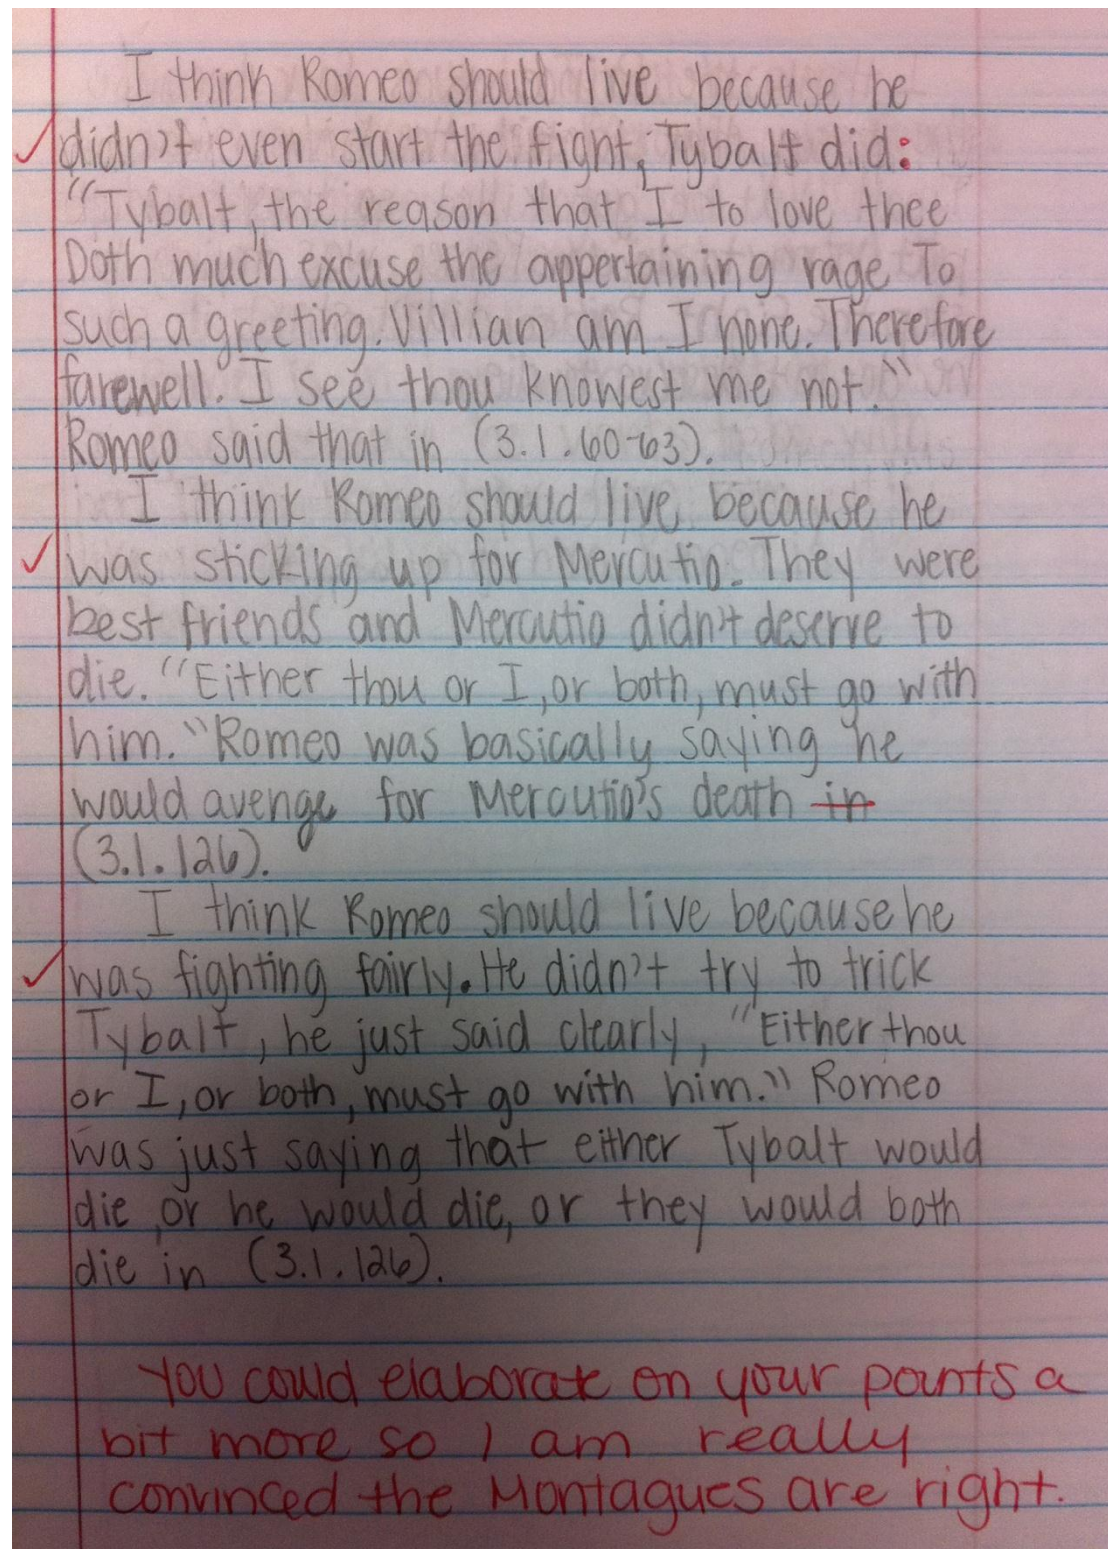 I think Romeo should live because he
didn't even start the fight, Tybalt did:
"Tybalt, the reason that I to love thee
Doth much excuse the appertaining rage To
such a greeting. Villian am I none. Therefore
farewell. I see thou knowest me not."
Romeo said that in (3.1.60-63).
I think Romeo should live because he
was sticking up for Mercutio. They were
best friends and Mercutio didn't deserve to
die. "Either thou or I, or both, must go with
him. "Romeo was basically saying he
would avenge for Mercutio's death in
(3.1.126).
I think Romeo should live because he
was fighting fairly. He didn't try to trick
Tybalt, he just said clearly, "Either thou
or I, or both, must go with him." Romeo
was just saying that either Tybalt would
die, or he would die, or they would both
die in (3.1.126).
You could elaborate on your points a
bit more so I am really
convinced the Montagues are right.